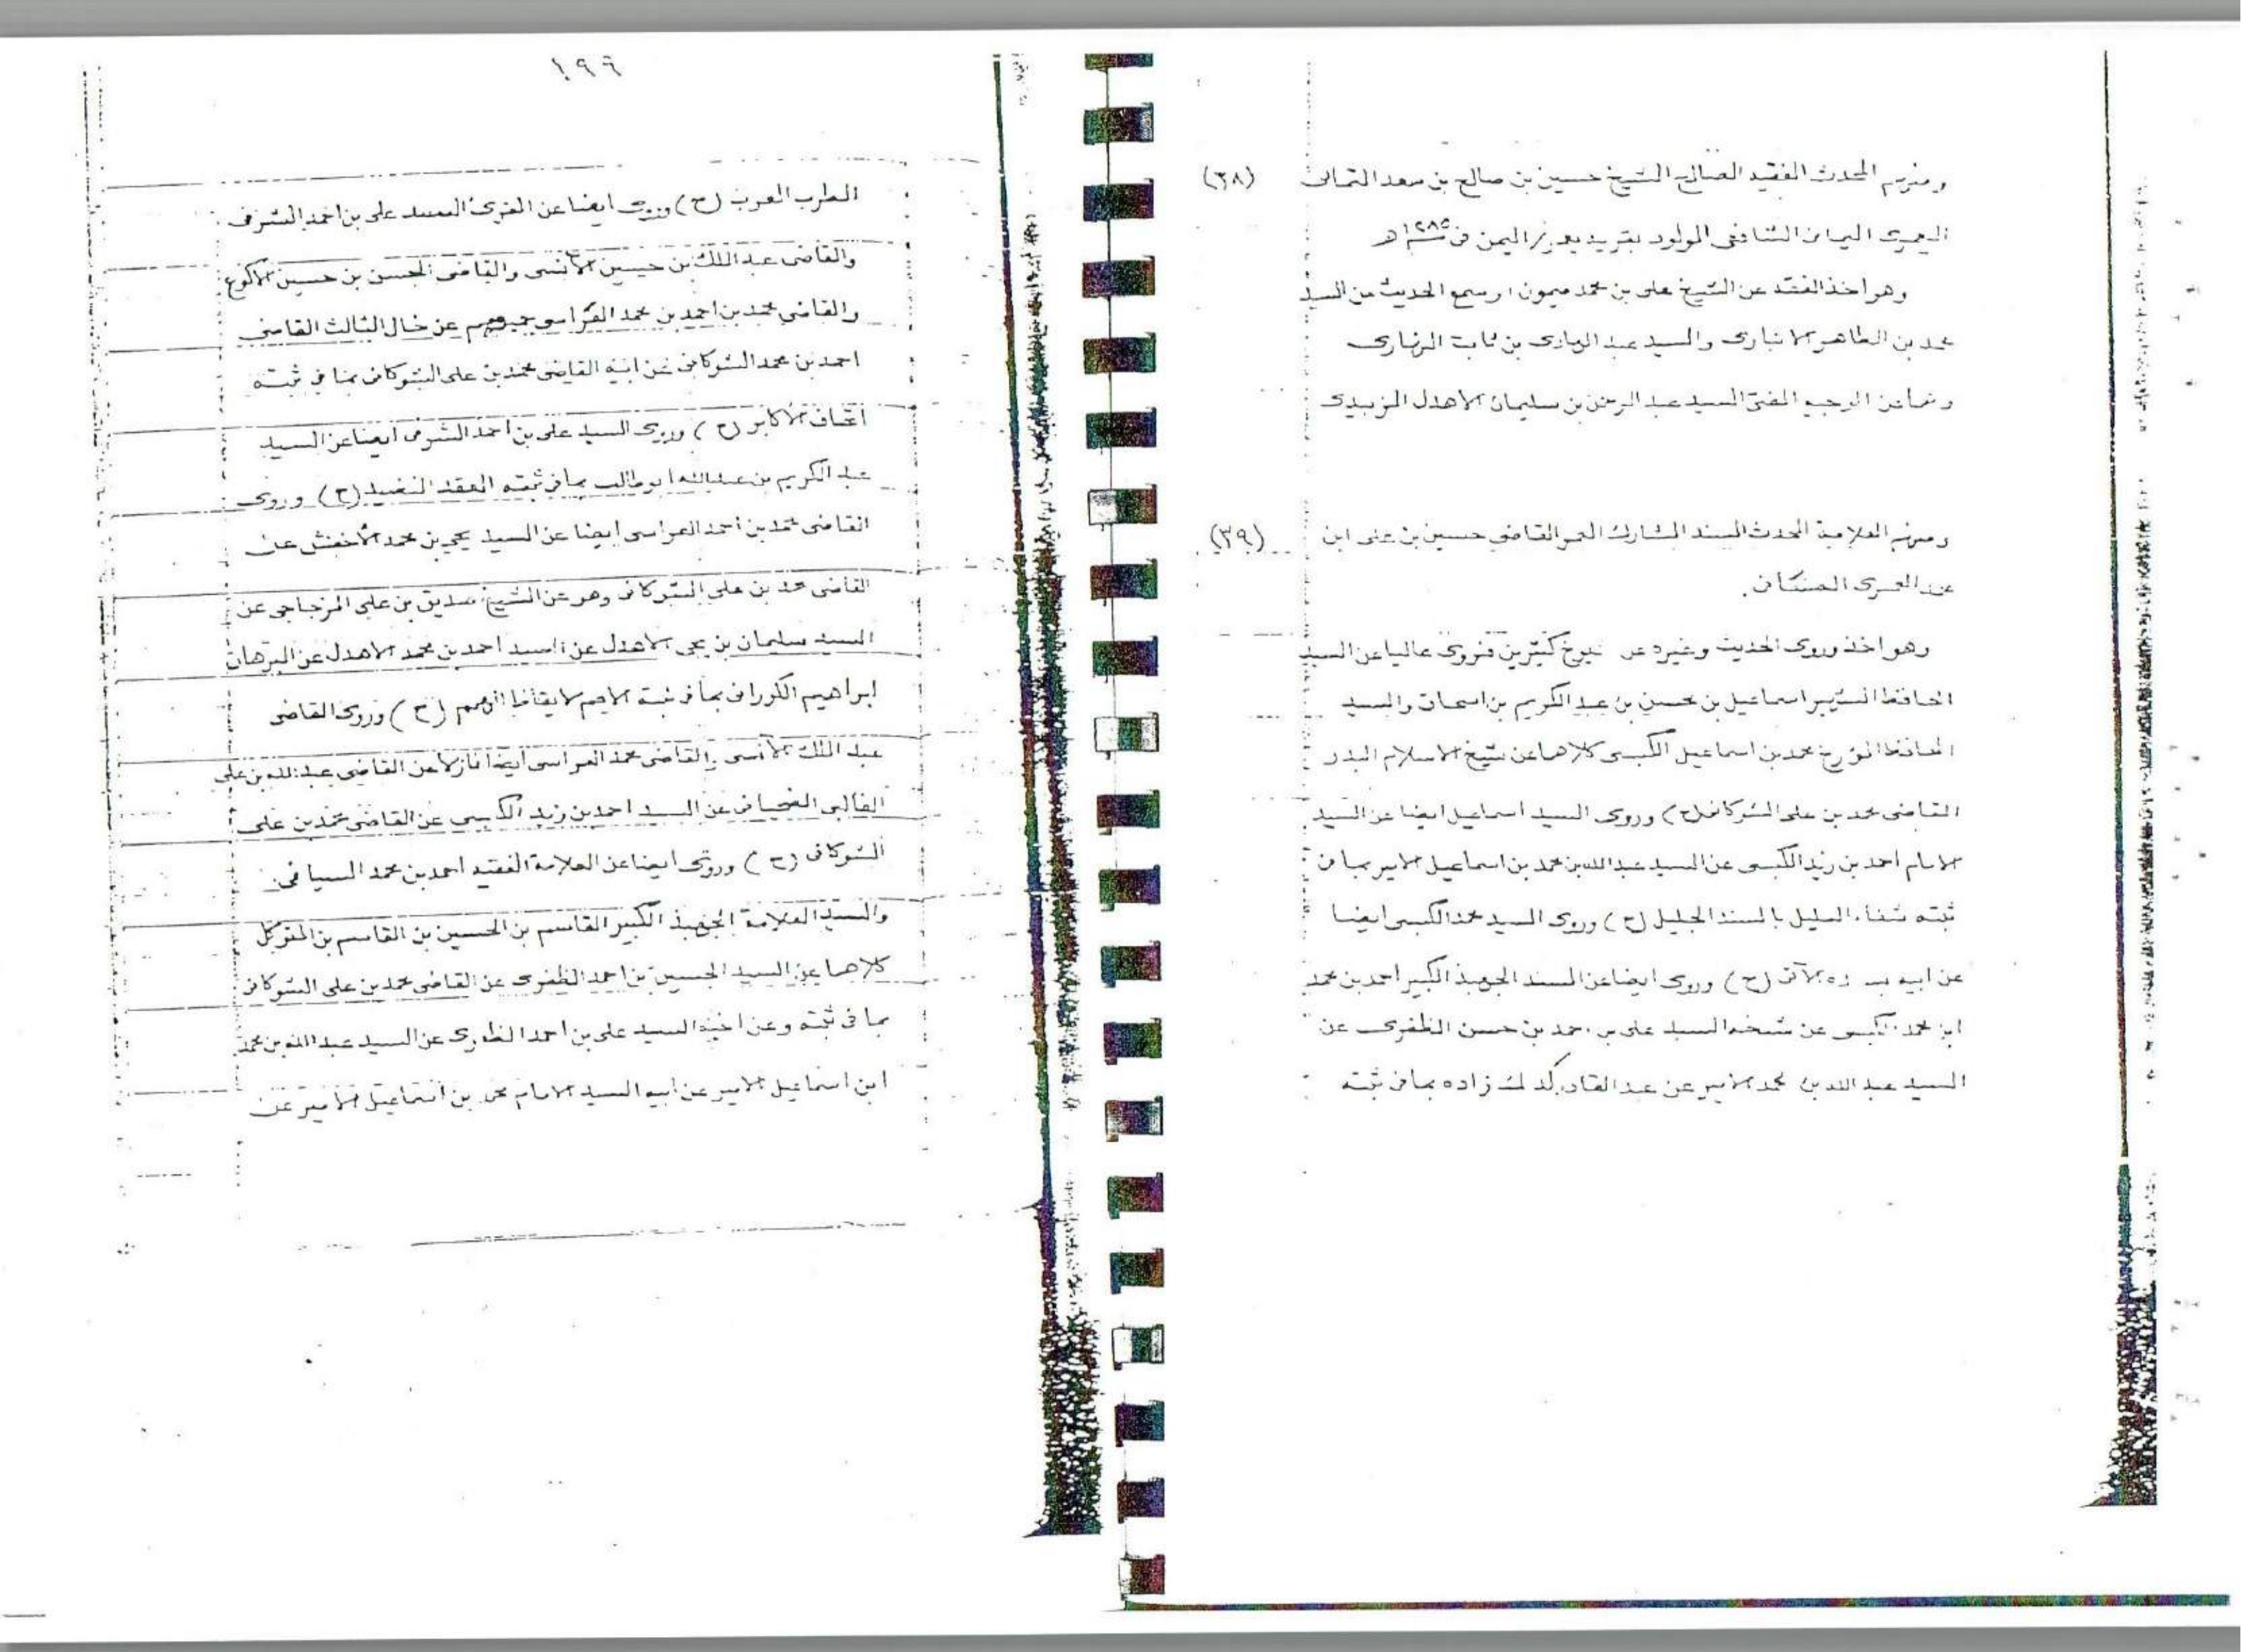 (٣٨) ومنهم المحدث الفقيه الصالح الشيخ حسين بن صالح بن سعد
اليماني الشافعي المولود بقرية اليمن في سنة ١٢٨٥هـ
وهو اخذ الفقه عن الشيخ علي بن محمد ميمون وسمع الحديث من السيد
محمد بن الطاهر الانباري والسيد عبد الهادي بن ثابت النهاري
الوجيه المفتي السيد عبد الرحمن بن سليمان الاهدل الزبيدي
(٣٩) ومنهم العلامة المحدث المسند المشارك المعمر القاضي حسين بن علي ابن
محمد العمري الصنعاني .
وهو اخذ وروى الحديث وغيره عن شيوخ كثيرين فروى عاليا عن السيد
الحافظ الشهير اسماعيل بن محسن بن عبد الكريم بن اسحاق والسيد
الحافظ المؤرخ محمد بن اسماعيل الكبسي كلاهما عن شيخ الاسلام البدر
القاضي محمد بن علي الشوكاني (ح) وروى السيد اسماعيل ايضا عن السيد
الامام احمد بن زيد الكبسي عن السيد عبد الله بن محمد بن اسماعيل الامير بما في
ثبته شفاء العليل بالسند الجليل (ح) وروى السيد محمد الكبسي ايضا
عن ابيه الآتي (ح) وروى ايضا عن السيد الجهبذ الكبير احمد بن محمد
ابن محمد الكبسي عن شيخه السيد علي بن احمد بن حسن الظفري عن
السيد عبد الله بن محمد الامير عن عبد القادر كدك زاده بما في ثبته
١٩٦
المطرب المعرب (ح) وروى ايضا عن العزي السيد علي بن احمد الشرفي
والقاضي عبد الملك بن حسين الآنسي والقاضي الحسن بن حسين الاكوع
والقاضي محمد بن احمد بن محمد العراسي جميعهم عن خال الثالث القاضي
احمد بن محمد الشوكاني عن ابيه القاضي محمد بن علي الشوكاني بما في ثبته
اتحاف الاكابر (ح) وروى السيد علي بن احمد الشرفي ايضا عن السيد
عبد الكريم بن عبد الله ابو طالب بما في ثبته العقد النضيد (ح) وروى
القاضي محمد بن احمد العراسي ايضا عن السيد يحيى بن محمد الأخفش عن
القاضي محمد بن علي الشوكاني وهو عن الشيخ صديق بن علي المزجاجي عن
السيد سليمان بن يحيى الاهدل عن السيد احمد بن محمد الاهدل عن البرهان
ابراهيم الكوراني بما في ثبته الامم لايقاظ الهمم (ح) وروى القاضي
عبد الملك الآنسي والقاضي محمد العراسي ايضا نازلا عن القاضي عبد الله بن علي
الغالبي الضحياني عن السيد احمد بن زيد الكبسي عن القاضي محمد بن علي
الشوكاني (ح) وروى ايضا عن العلامة الفقيه احمد بن محمد السياغي
والسيد العلامة الجهبذ الكبير القاسم بن الحسين بن القاسم بن المتوكل
كلاهما عن السيد الحسين بن احمد الظفري عن القاضي محمد بن علي الشوكاني
بما في ثبته وعن اخيه السيد علي بن احمد الظفري عن السيد عبد الله بن محمد
ابن اسماعيل الامير عن ابيه السيد الامام محمد بن اسماعيل الامير عن